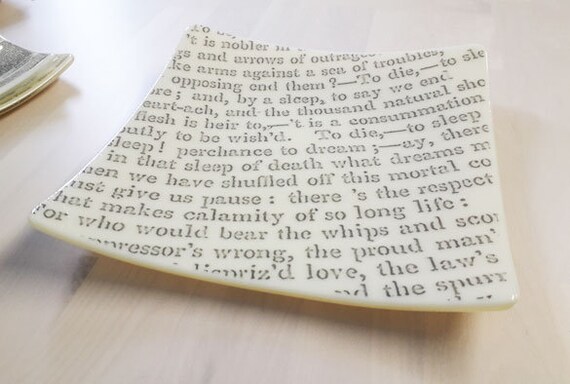 To
't is nobler in
and arrows of outrageo
ke arms against a sea of troubles,
opposing end them ?—To die,—to sle
re; and, by a sleep, to say we end
eart-ach, and the thousand natural sho
flesh is heir to,—'t is a consummation
outly to be wish'd. To die,—to sleep
leep! perchance to dream ;—ay, there
in that sleep of death what dreams m
hen we have shuffled off this mortal co
ust give us pause : there 's the respect
hat makes calamity of so long life :
or who would bear the whips and scor
ppressor's wrong, the proud man'
dispriz'd love, the law's
nd the spurr